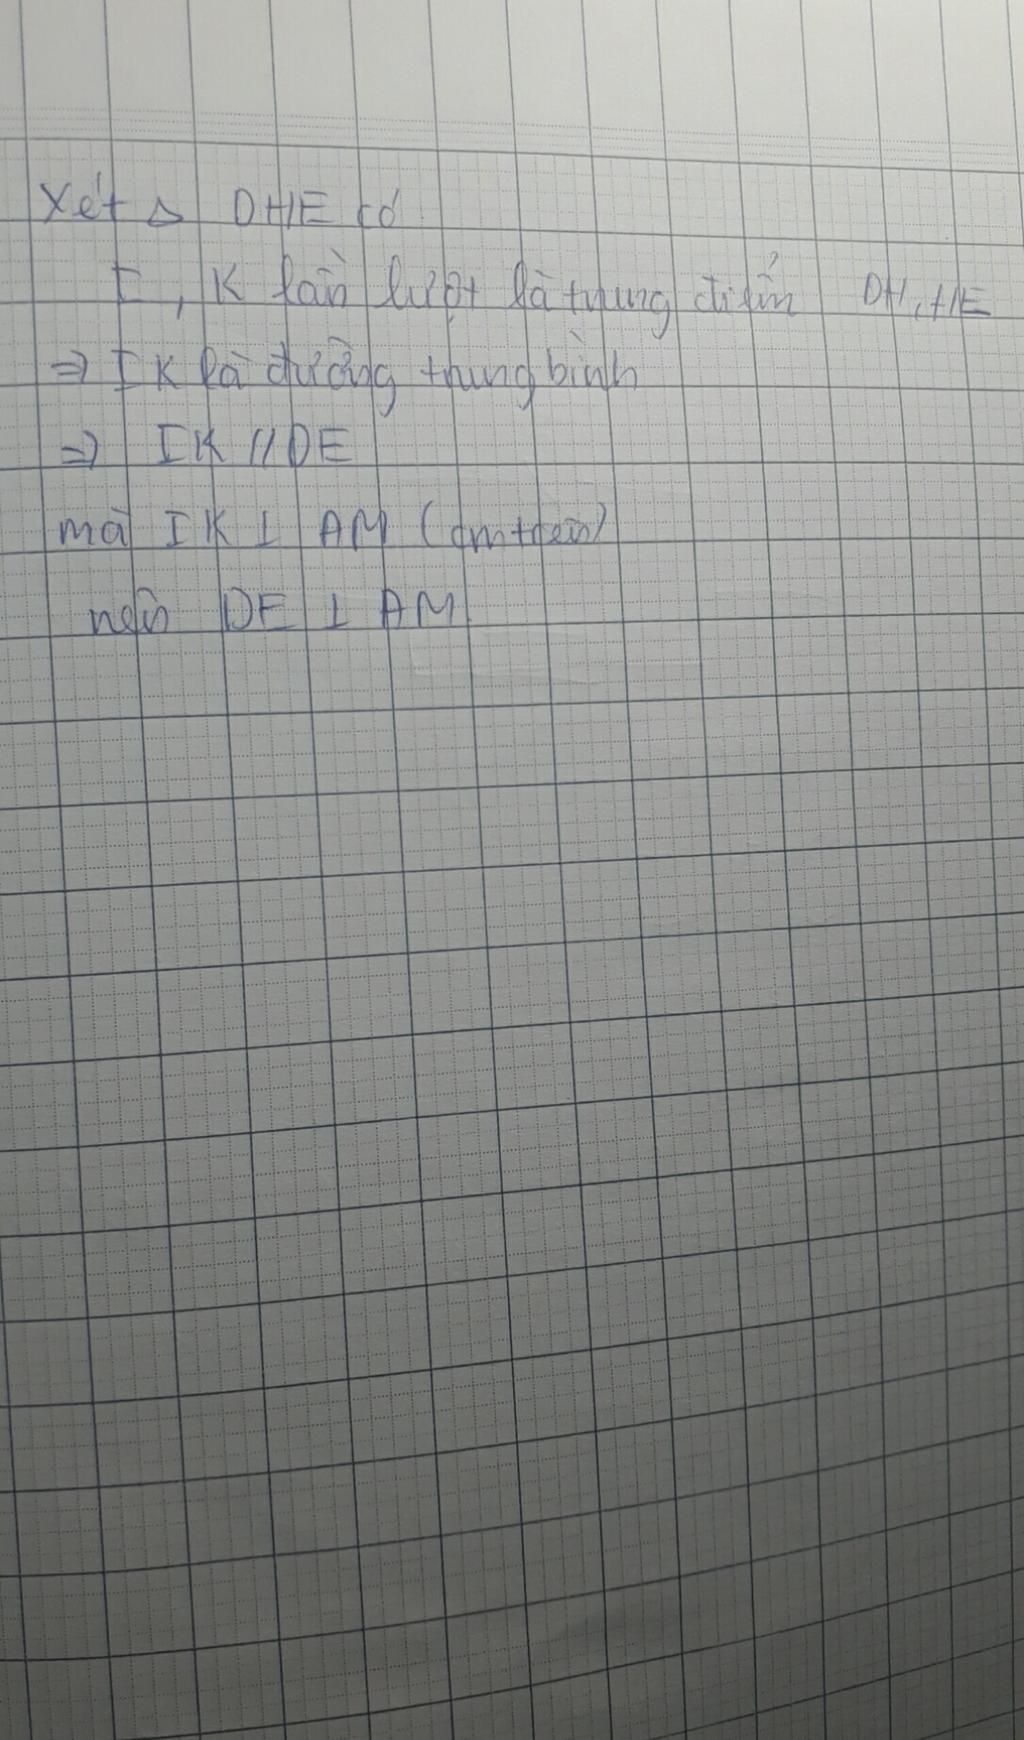 Xét Δ DHE có
I, K lần lượt là trung điểm DH, HE
=> IK là đường trung bình
=> IK // DE
mà IK ⊥ AM (cm trên)
nên DE ⊥ AM